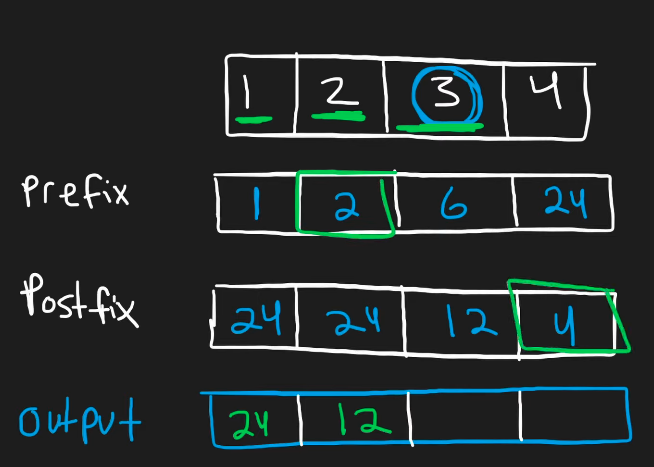 1 2 3 4
Prefix 1 2 6 24
Postfix 24 24 12 4
output 24 12